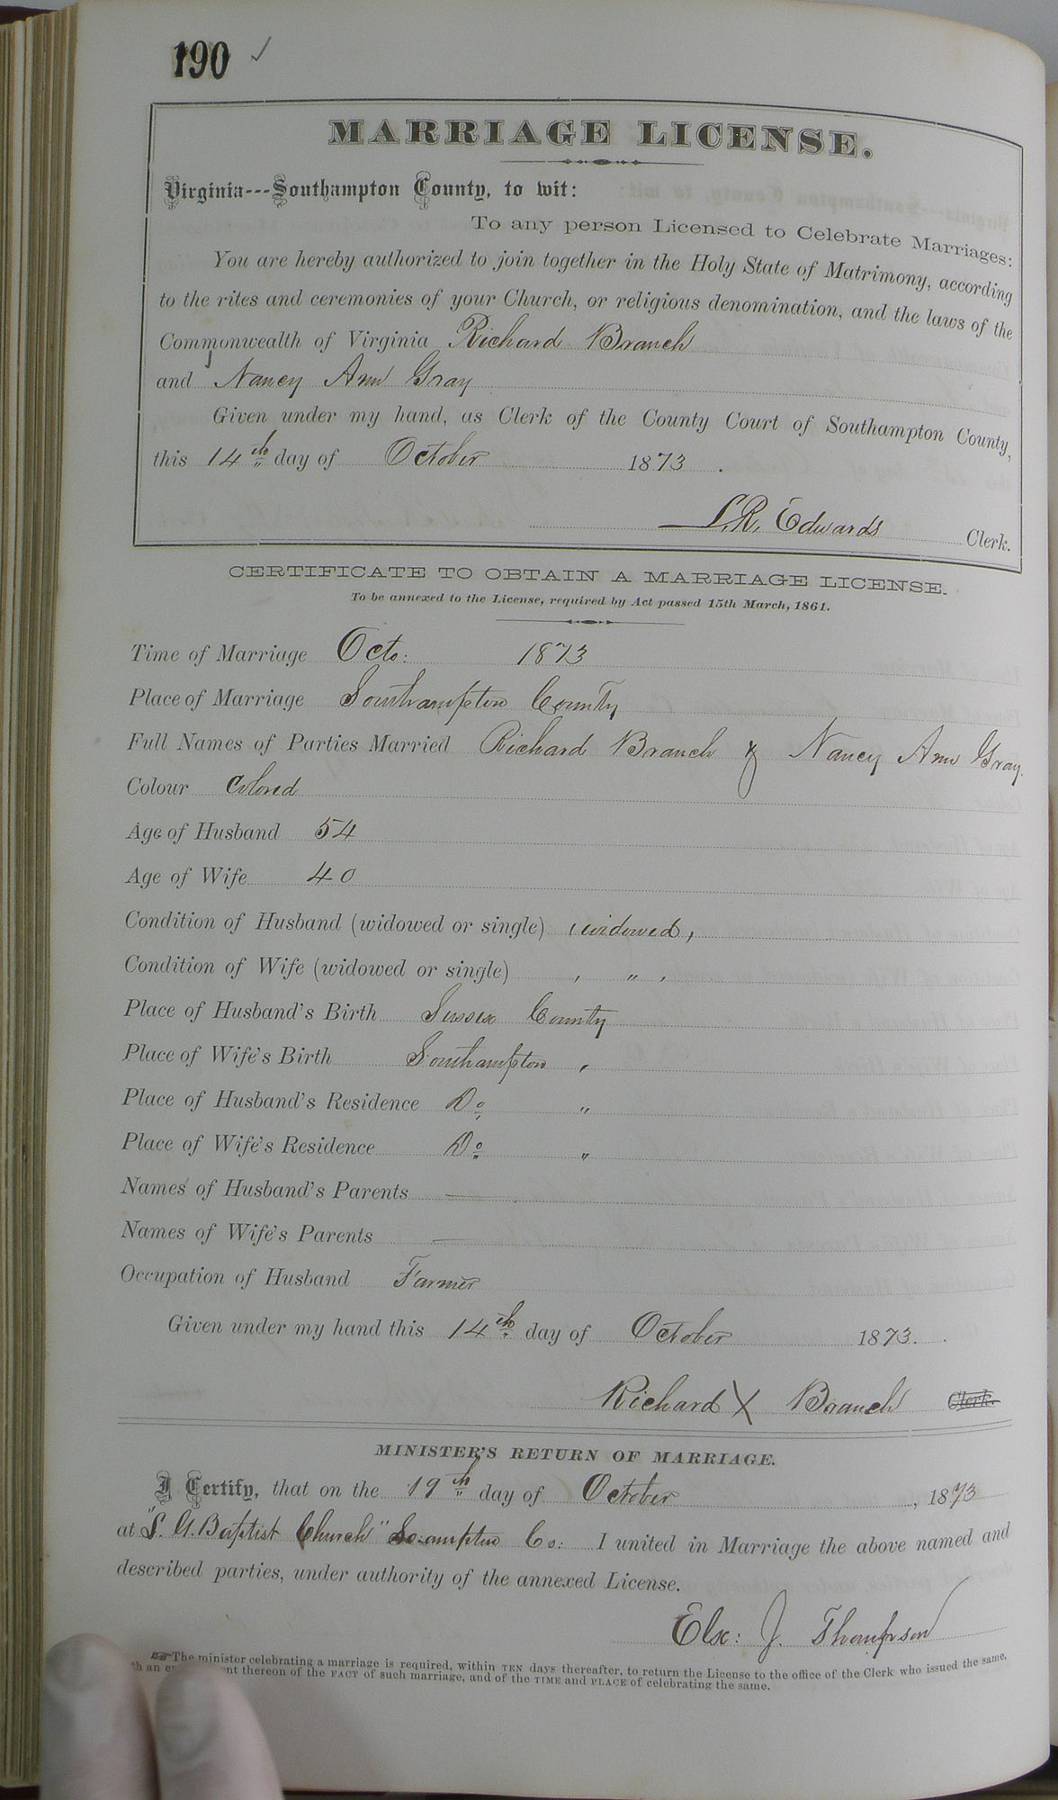 190 ✓
MARRIAGE LICENSE.
Virginia---Southampton County, to wit:
To any person Licensed to Celebrate Marriages:
You are hereby authorized to join together in the Holy State of Matrimony, according
to the rites and ceremonies of your Church, or religious denomination, and the laws of the
Commonwealth of Virginia Richard Branch
and Nancy Ann Gray
Given under my hand, as Clerk of the County Court of Southampton County,
this 14th day of October 1873.
L.R. Edwards Clerk.
CERTIFICATE TO OBTAIN A MARRIAGE LICENSE.
To be annexed to the License, required by Act passed 15th March, 1861.
Time of Marriage Octo: 1873
Place of Marriage Southampton County
Full Names of Parties Married Richard Branch & Nancy Ann Gray.
Colour Colored
Age of Husband 54
Age of Wife 40
Condition of Husband (widowed or single) widowed,
Condition of Wife (widowed or single) , " ,
Place of Husband's Birth Sussex County
Place of Wife's Birth Southampton "
Place of Husband's Residence Do "
Place of Wife's Residence Do "
Names of Husband's Parents —
Names of Wife's Parents —
Occupation of Husband Farmer
Given under my hand this 14th day of October 1873.
Richard X Branch Clerk.
MINISTER'S RETURN OF MARRIAGE.
I Certify, that on the 19th day of October, 1873
at "Baptist Church" So:ampton Co: I united in Marriage the above named and
described parties, under authority of the annexed License.
J. Thompson
The minister celebrating a marriage is required, within TEN days thereafter, to return the License to the office of the Clerk who issued the same,
an thereon of the FACT of such marriage, and of the TIME and PLACE of celebrating the same.